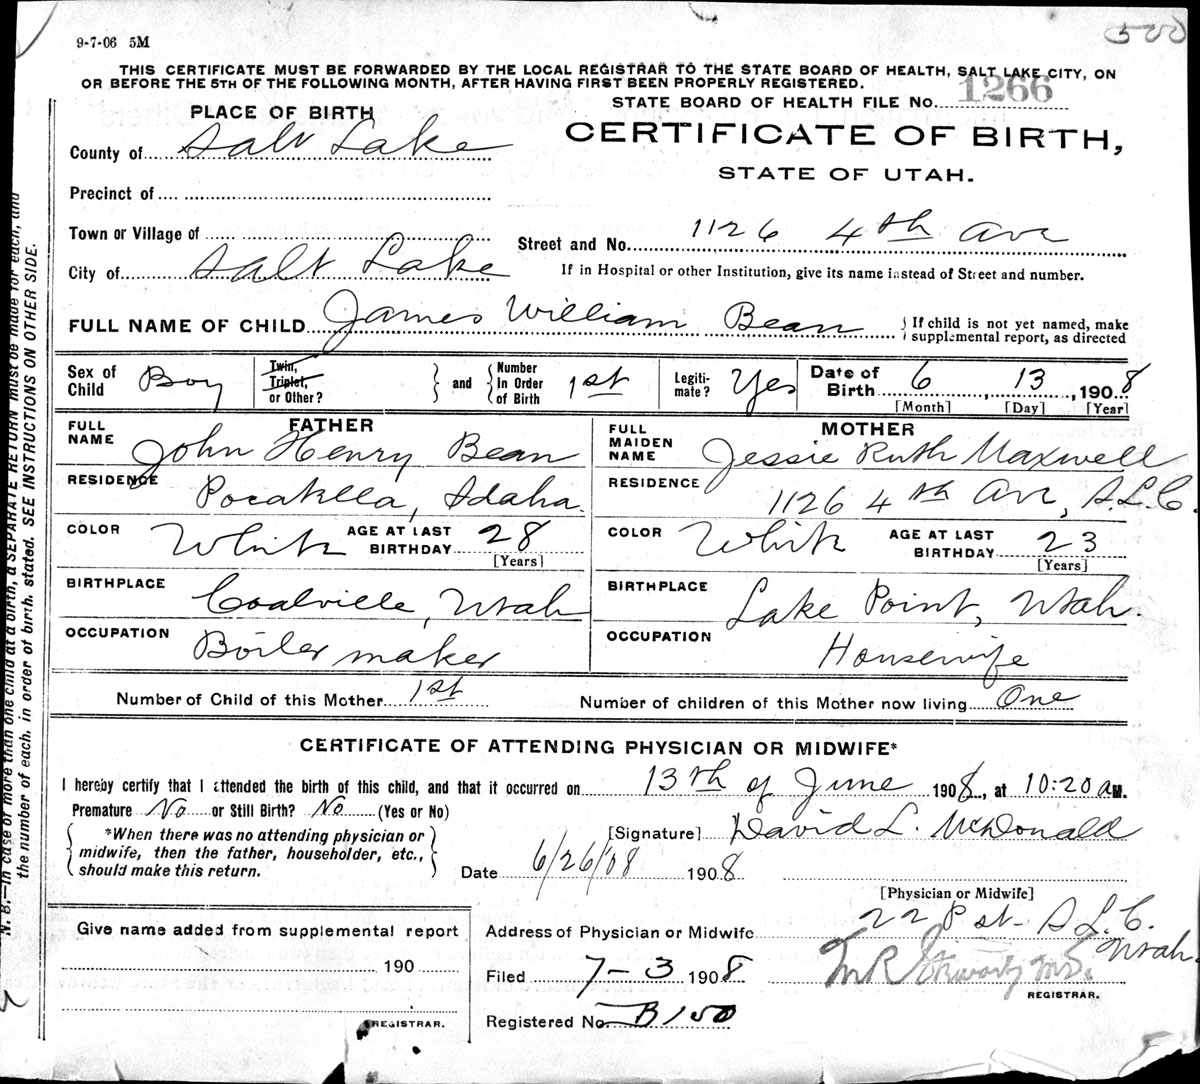 500
9-7-06 5M
THIS CERTIFICATE MUST BE FORWARDED BY THE LOCAL REGISTRAR TO THE STATE BOARD OF HEALTH, SALT LAKE CITY, ON
OR BEFORE THE 5TH OF THE FOLLOWING MONTH, AFTER HAVING FIRST BEEN PROPERLY REGISTERED.
STATE BOARD OF HEALTH FILE No. 1266
PLACE OF BIRTH
CERTIFICATE OF BIRTH,
County of Salt Lake
STATE OF UTAH.
Precinct of
Town or Village of
Street and No. 1126 4th Ave
City of Salt Lake
If in Hospital or other Institution, give its name instead of Street and number.
FULL NAME OF CHILD James William Bean
If child is not yet named, make
supplemental report, as directed
Sex of Child Boy
Twin, Triplet, or Other?
and Number in Order of Birth 1st
Legitimate? Yes
Date of Birth 6, 13, 1908
[Month] [Day] [Year]
FATHER
FULL NAME John Henry Bean
RESIDENCE Pocatella, Idaho.
COLOR White AGE AT LAST BIRTHDAY 28
[Years]
BIRTHPLACE Coalville, Utah
OCCUPATION Boiler maker
MOTHER
FULL MAIDEN NAME Jessie Ruth Maxwell
RESIDENCE 1126 4th Ave, S.L.C.
COLOR White AGE AT LAST BIRTHDAY 23
[Years]
BIRTHPLACE Lake Point, Utah.
OCCUPATION Housewife
Number of Child of this Mother 1st Number of children of this Mother now living One
CERTIFICATE OF ATTENDING PHYSICIAN OR MIDWIFE*
I hereby certify that I attended the birth of this child, and that it occurred on 13th of June 1908, at 10:20 a.M.
Premature No or Still Birth? No (Yes or No)
*When there was no attending physician or
midwife, then the father, householder, etc.,
should make this return.
[Signature] David L. McDonald
Date 6/26/08 1908
[Physician or Midwife]
Address of Physician or Midwife 22 P st- S.L.C. Utah.
Give name added from supplemental report
190
REGISTRAR.
Filed 7-3 1908
M R M.D.
REGISTRAR.
Registered No. B100
N. B.—In case of more than one child at a birth, a SEPARATE RETURN must be made for each, and
the number of each, in order of birth, stated. SEE INSTRUCTIONS ON OTHER SIDE.